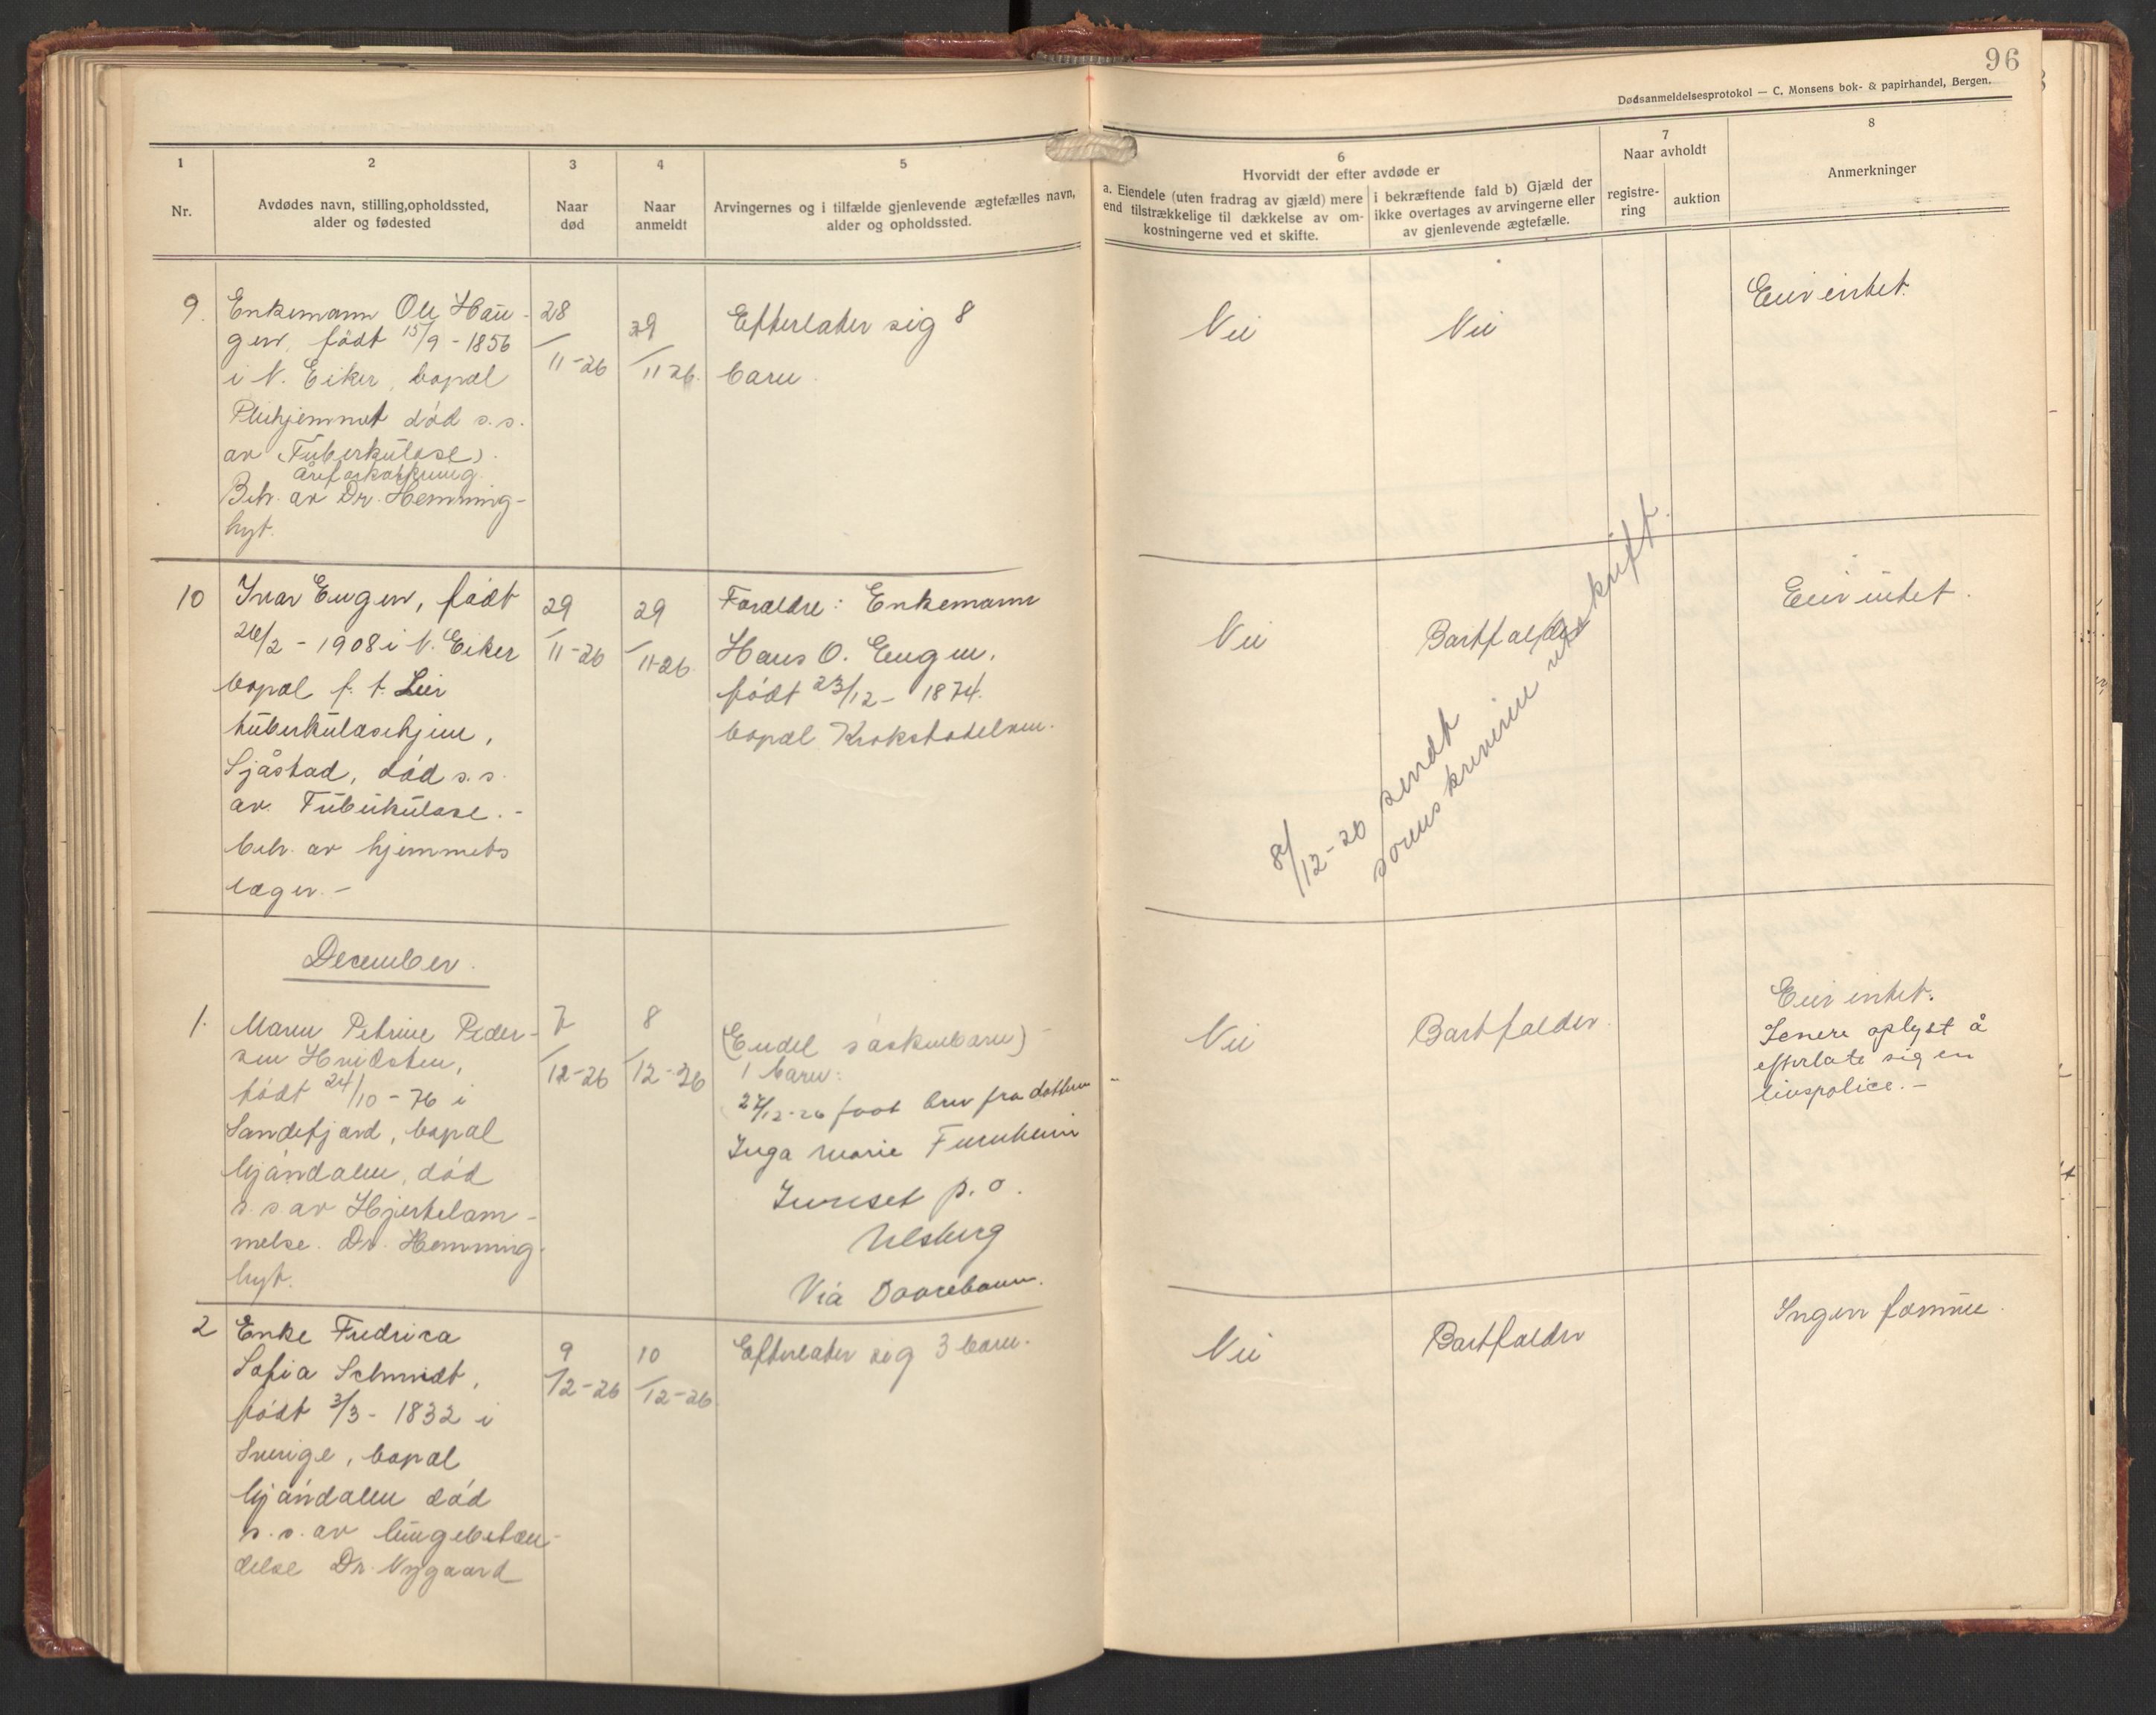 96
Dødsanmeldelsesprotokol — C. Monsens bok- & papirhandel, Bergen.
1
Nr.
2
Avdødes navn, stilling,opholdssted,
alder og fødested
3
Naar
død
4
Naar
anmeldt
5
Arvingernes og i tilfælde gjenlevende ægtefælles navn,
alder og opholdssted.
6
Hvorvidt der efter avdøde er
a. Eiendele (uten fradrag av gjæld) mere
end tilstrækkelige til dækkelse av om-
kostningerne ved et skifte.
i bekræftende fald b) Gjæld der
ikke overtages av arvingerne eller
av gjenlevende ægtefælle.
7
Naar avholdt
registre-
ring
auktion
8
Anmerkninger
9.
Enkemann Ole Hau-
gen, født 15/9 - 1856
i N. Eiker, bopæl
Pleihjemmet død s.s.
av (Tuberkulose).
Åreforkalkning.
Beh. av Dr. Hemming-
hyt.
28
/11-26
29
/11 26.
Efterlater sig 8
barn.
Nei
Nei
Eier intet.
10
Ivar Eugen, født
26/2 - 1908 i N. Eiker
bopæl f. t. Lier
tuberkulosehjem,
Sjåstad, død s.s.
av. Tuberkulose. -
beh. av hjemmets
læger. -
29
/11-26
29
/11-26.
Foreldre: Enkemann
Hans O. Eugen,
født 23/12 - 1874.
bopæl Krokstadelven.
Nei
Bortfalder
Eier intet.
8/12-26 sendt
sorenskriveren utskrift.
December.
1.
Maren Petrine Peder-
sen Hvidsten,
født 24/10 - 76 i
Sandefjord, bopæl
Mjøndalen, død
s.s. av Hjertelam-
melse. Dr. Hemming-
hyt.
7
/12-26
8
/12-26
(Endel søskenbarn)
1 barn:
27/12-26 faat brev fra datteren
Inga Marie Furuheim
Innset p.o.
Ulsberg
Via
Nei
Bortfalder.
Eier intet.
Senere oplyst å
efterlate sig en
livspolice. -
2
Enke Fredrica
Sofia Schmidt,
født 3/3 - 1832 i
Sverige, bopæl
Mjøndalen død
s.s. av lungebetæn-
delse Dr. Nygaard
9
/12-26
10
/12-26
Efterlater sig 3 barn.
Nei
Bortfalder
Ingen formue.